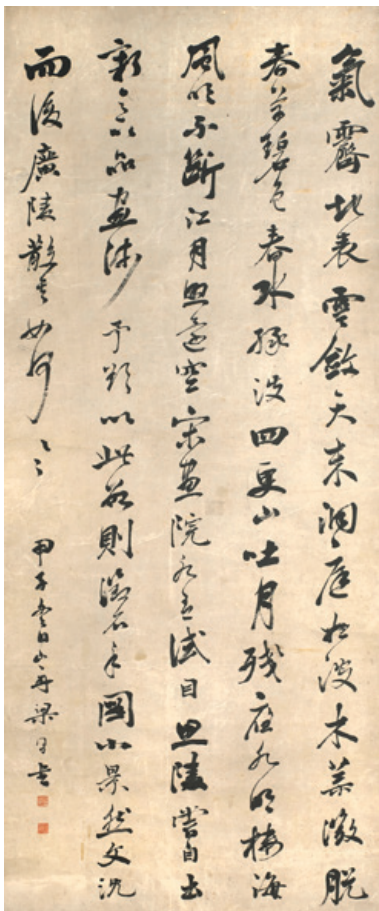 氣霽地表雲斂天末洞庭始波木葉微脫
春草碧色春水綠波四更山吐月殘夜水明樓海
風吹不斷江月照還空宋畫院各立試目思陵嘗自出
新意以品畫師予欲以此數則徵名手圖小景然文沈
而後廣陵散矣如何
甲子日山舟梁同書